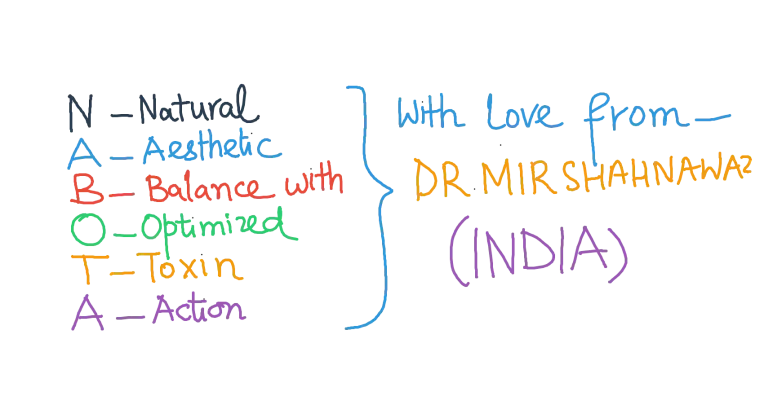 N - Natural
A - Aesthetic
B - Balance with
O - Optimized
T - Toxin
A - Action
With Love from -
DR. MIR SHAHNAWAZ
(INDIA)